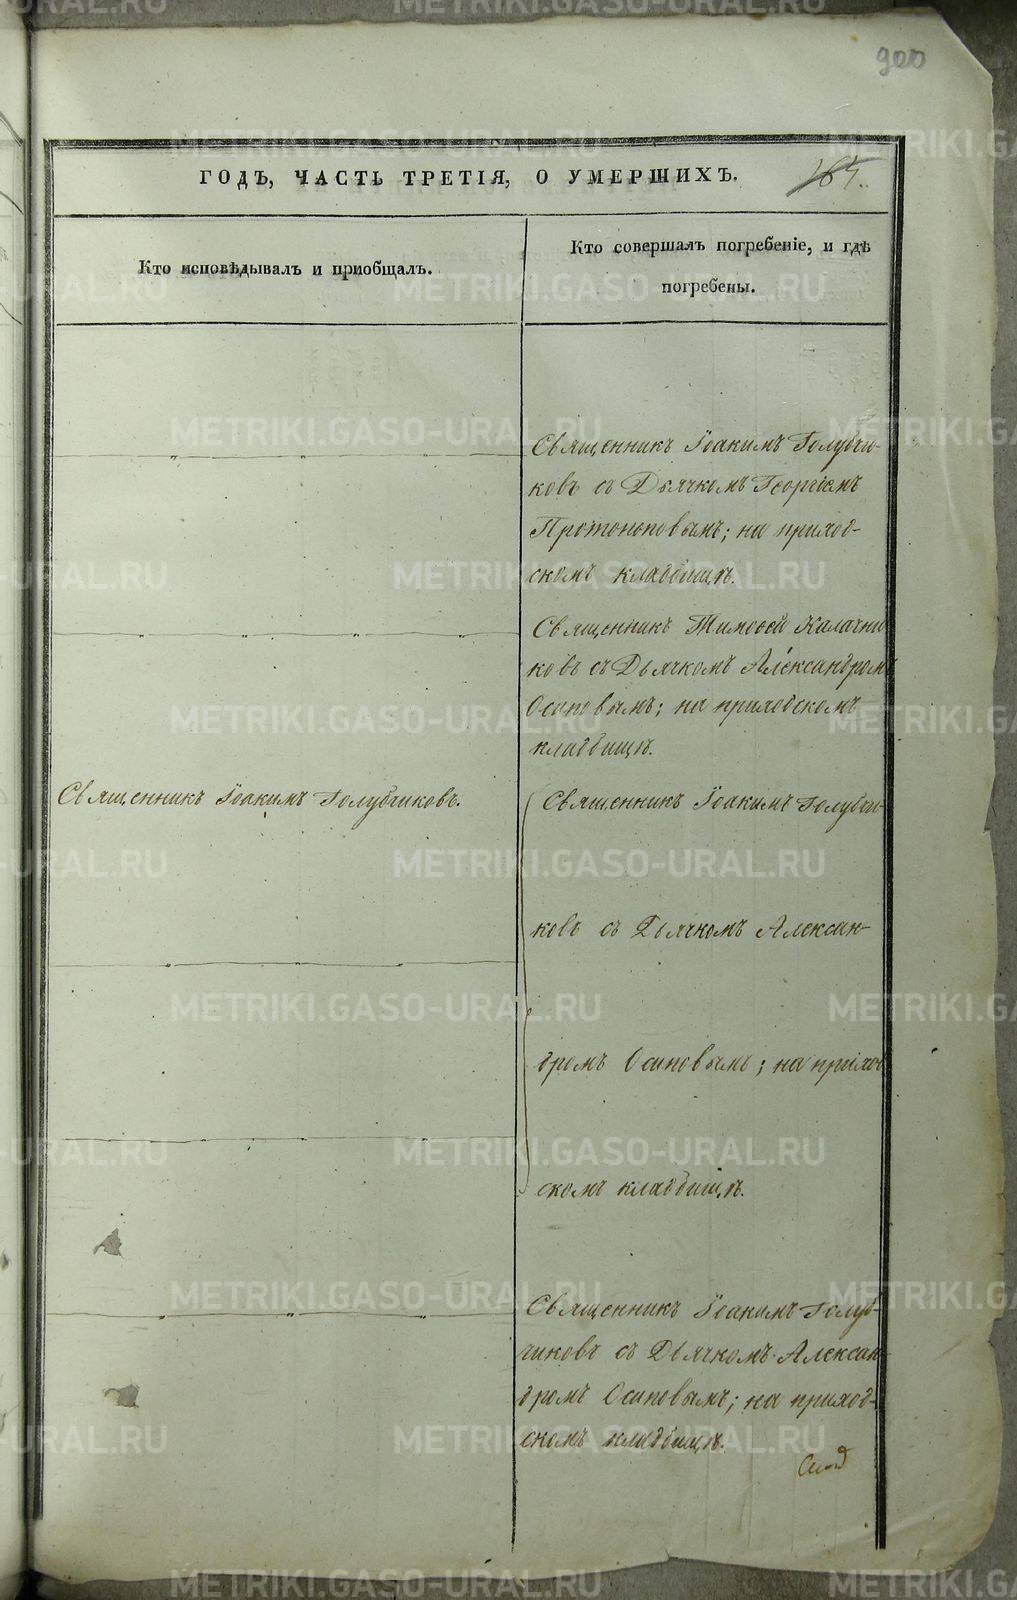 900
ГОДЪ, ЧАСТЬ ТРЕТІЯ, О УМЕРШИХЪ.
Кто исповѣдывалъ и приобщалъ.
Кто совершалъ погребеніе, и гдѣ
погребены.
Священникъ Іоакимъ Голубчи-
ковъ съ Дьячкомъ Георгіемъ
Протопоповымъ; на приход-
скомъ кладбищѣ.
Священникъ Тимофей Калачни
ковъ съ Дьячкомъ Александромъ
Осиповымъ; на приходскомъ
кладбищѣ.
Священникъ Іоакимъ Голубчиковъ.
Священникъ Іоакимъ Голубчи-
ковъ съ Дьячкомъ Алексан-
дромъ Осиповымъ; на приход
скомъ кладбищѣ.
Священникъ Іоакимъ Голуб-
чиковъ съ Дьячкомъ Алексан-
дромъ Осиповымъ; на приход-
скомъ кладбищѣ.
METRIKI.GASO-URAL.RU